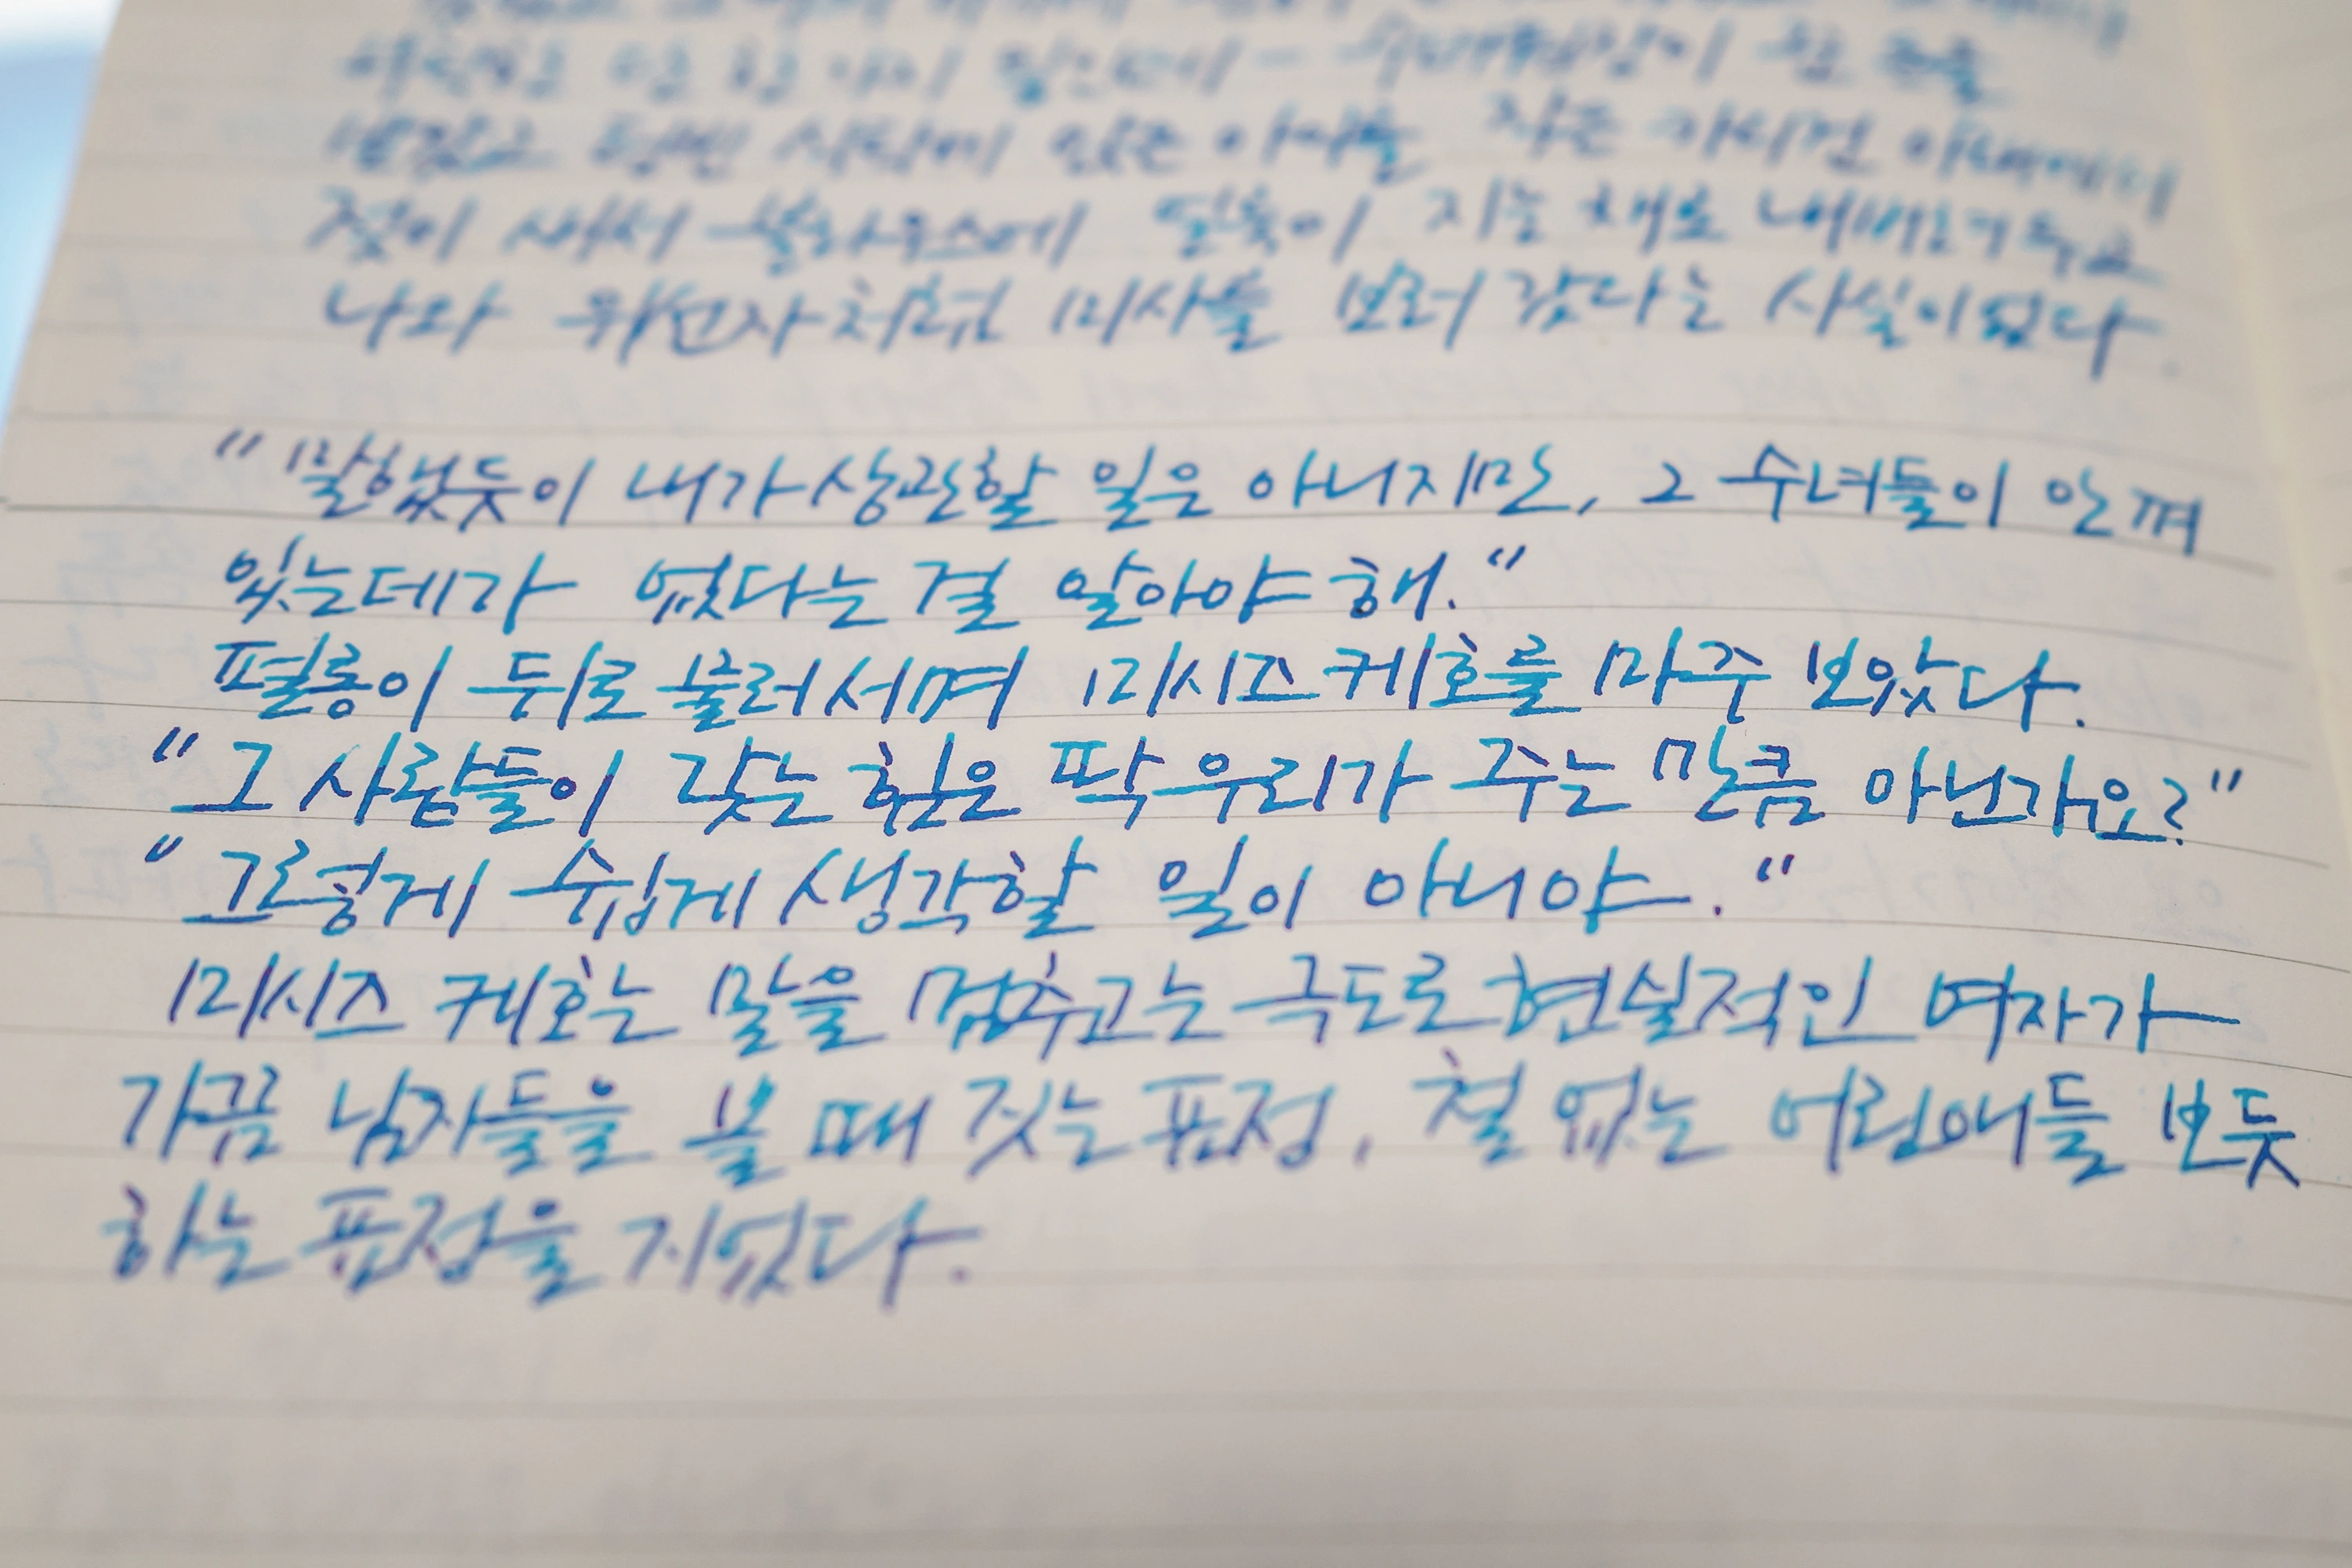 젖이 새서 블라우스에 얼룩이 지는 채로 내버려두고
나와 위선자처럼 미사를 보러 갔다는 사실이었다.
"말했듯이 내가 상관할 일은 아니지만, 그 수녀들이 안 껴
있는데가 없다는 걸 알아야 해."
펄롱이 뒤로 물러서며 미시즈 케호를 마주 보았다.
"그 사람들이 갖는 힘은 딱 우리가 주는 만큼 아닌가요?"
"그렇게 쉽게 생각할 일이 아니야."
미시즈 케호는 말을 멈추고는 극도로 현실적인 여자가
가끔 남자들을 볼 때 짓는 표정, 철 없는 어린애들 보듯
하는 표정을 지었다.